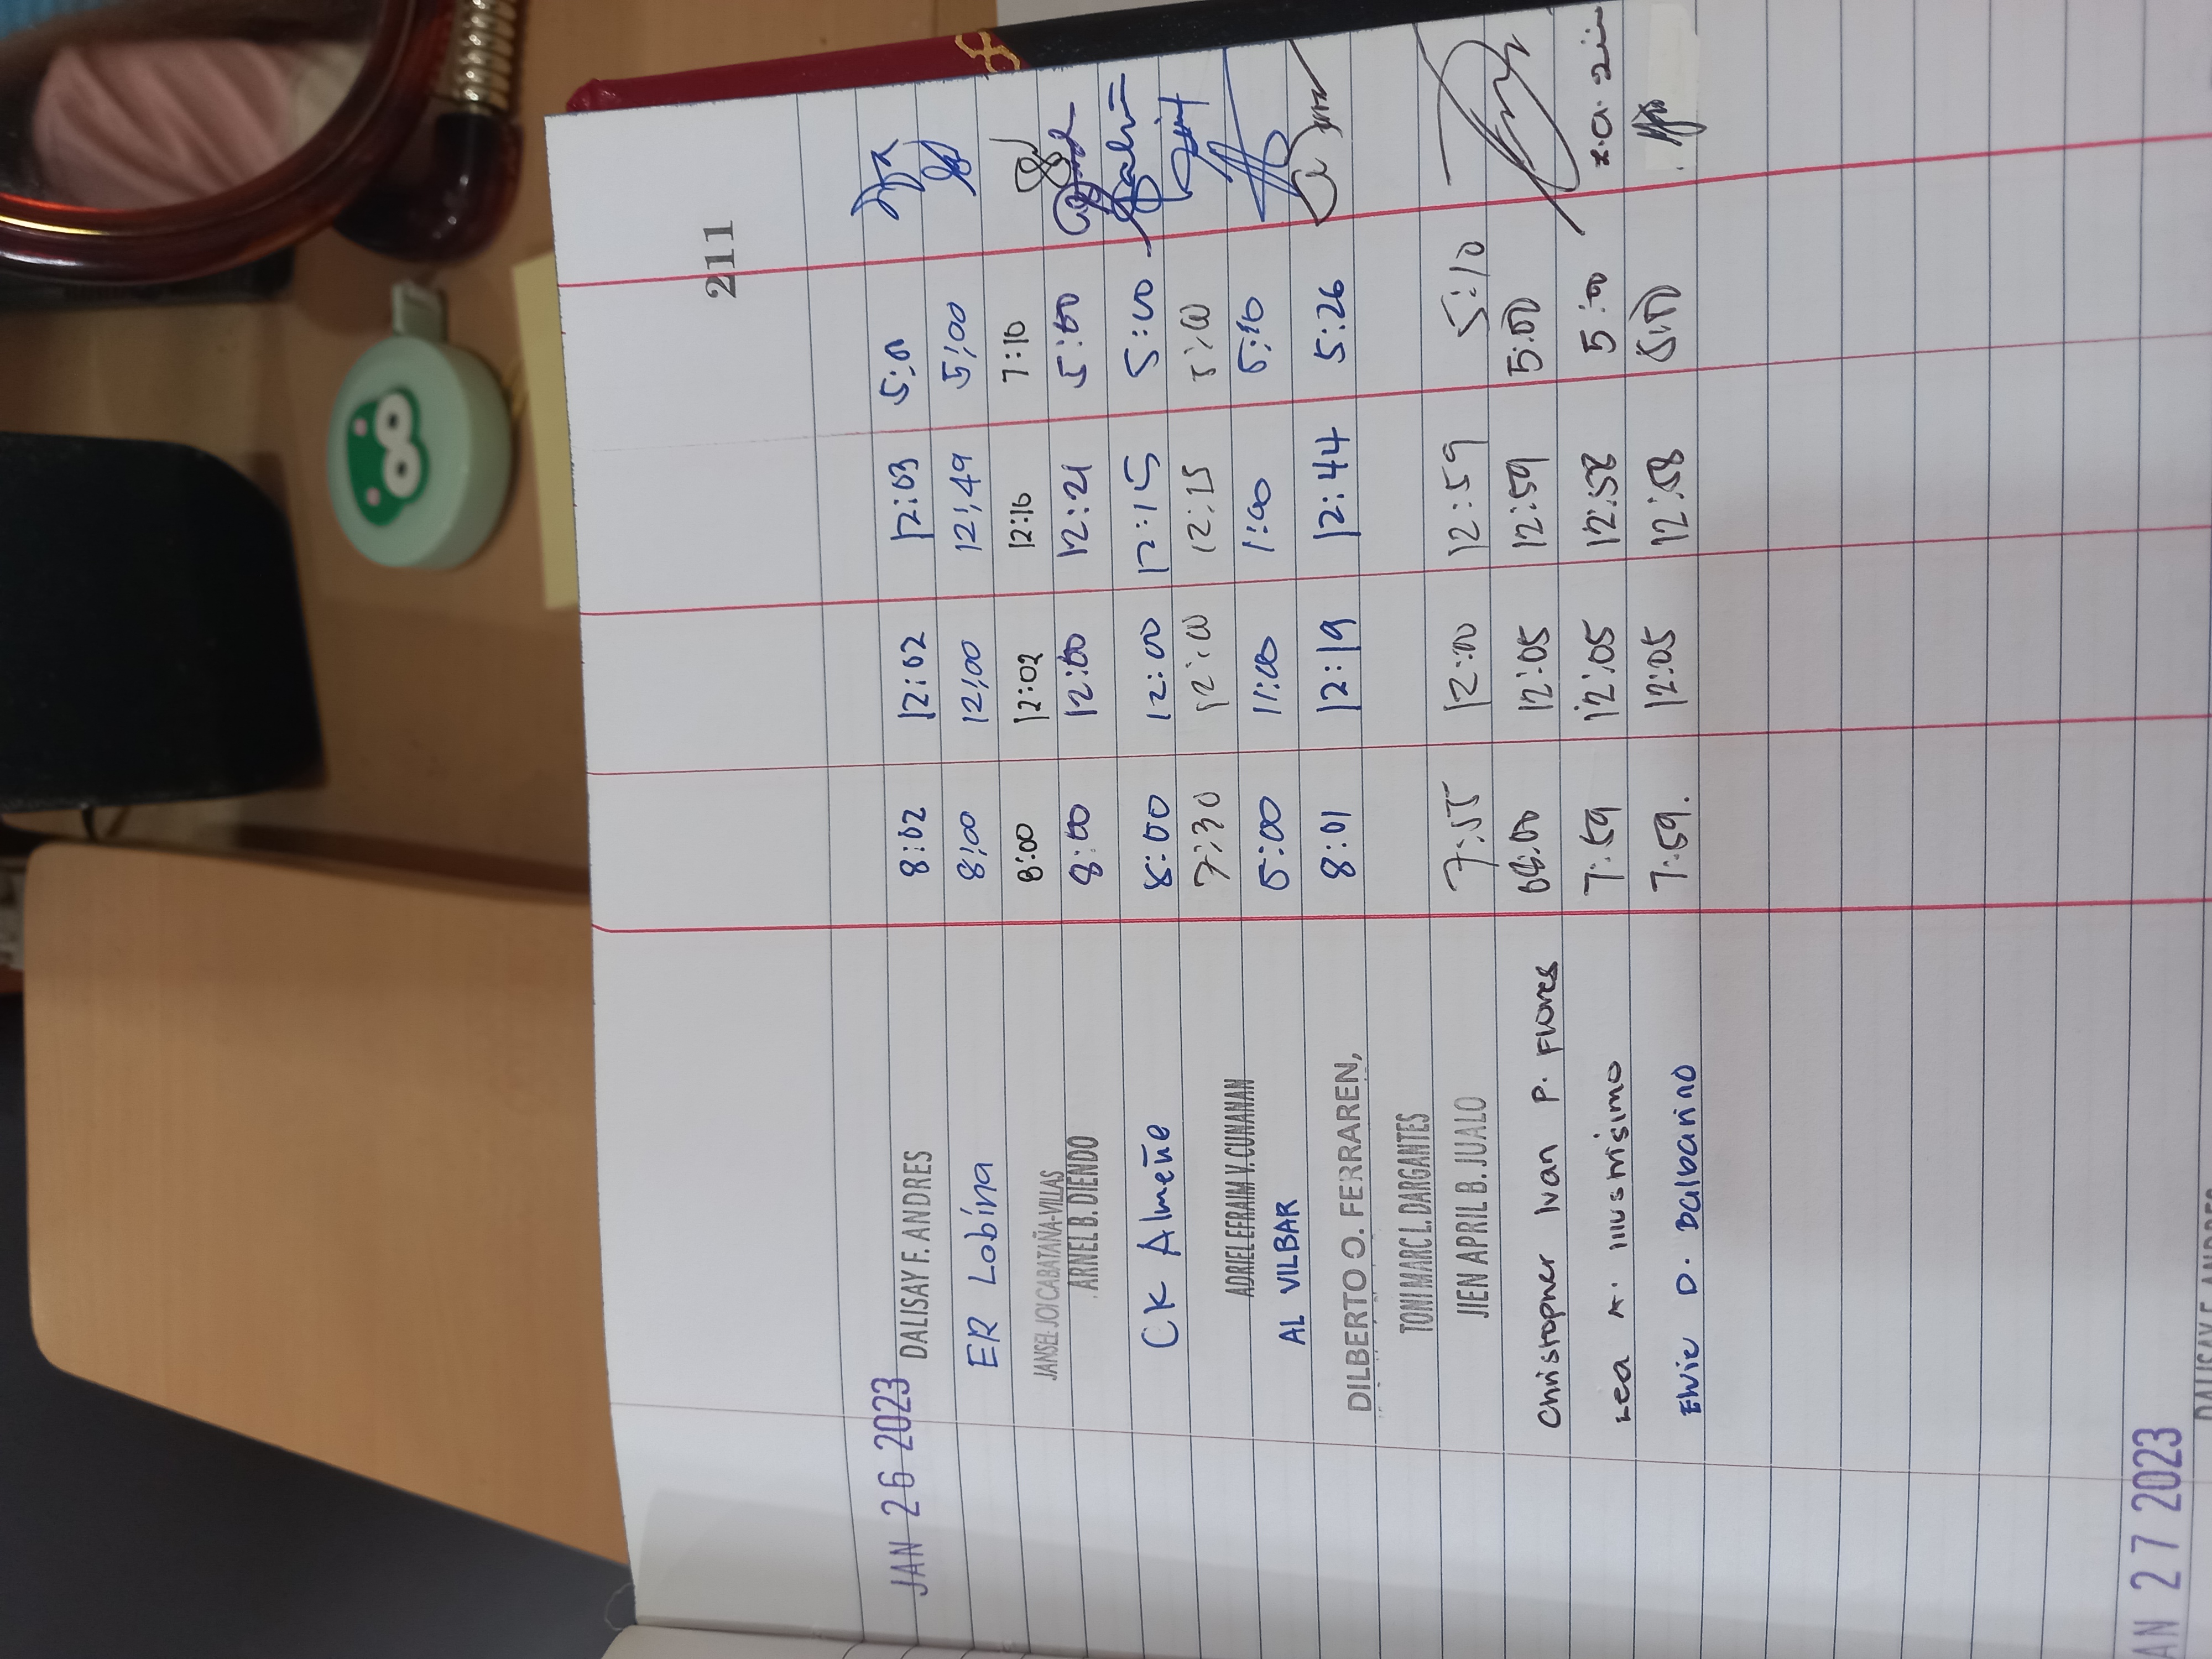 211
JAN 26 2023
DALISAY F. ANDRES 8:02 12:02 12:03 5:01
ER Lobina 8:00 12:00 12:49 5:00
JANSEL JOI CABATAÑA-VILLAS 8:00 12:02 12:16 7:10
ARNEL B. DIENDO 8:00 12:00 12:21 5:00
CK Almeñe 8:00 12:00 12:15 5:00
ADRIEL EFRAIM V. CUNANAN 7:30 12:00 12:15 5:00
AL VILBAR 5:00 11:00 1:00 5:10
DILBERTO O. FERRAREN, 8:01 12:19 12:44 5:26
TONI MARC L. DARGANTES
JIEN APRIL B. JUALO 7:55 12:00 12:59 5:10
Christopher Ivan P. Flores 08:00 12:05 12:59 5:00
Lea A. Illustrisimo 7:59 12:05 12:58 5:00
Elvie D. Balbarino 7:59. 12:05 12:58
AN 27 2023
DALISAY F. ANDRES